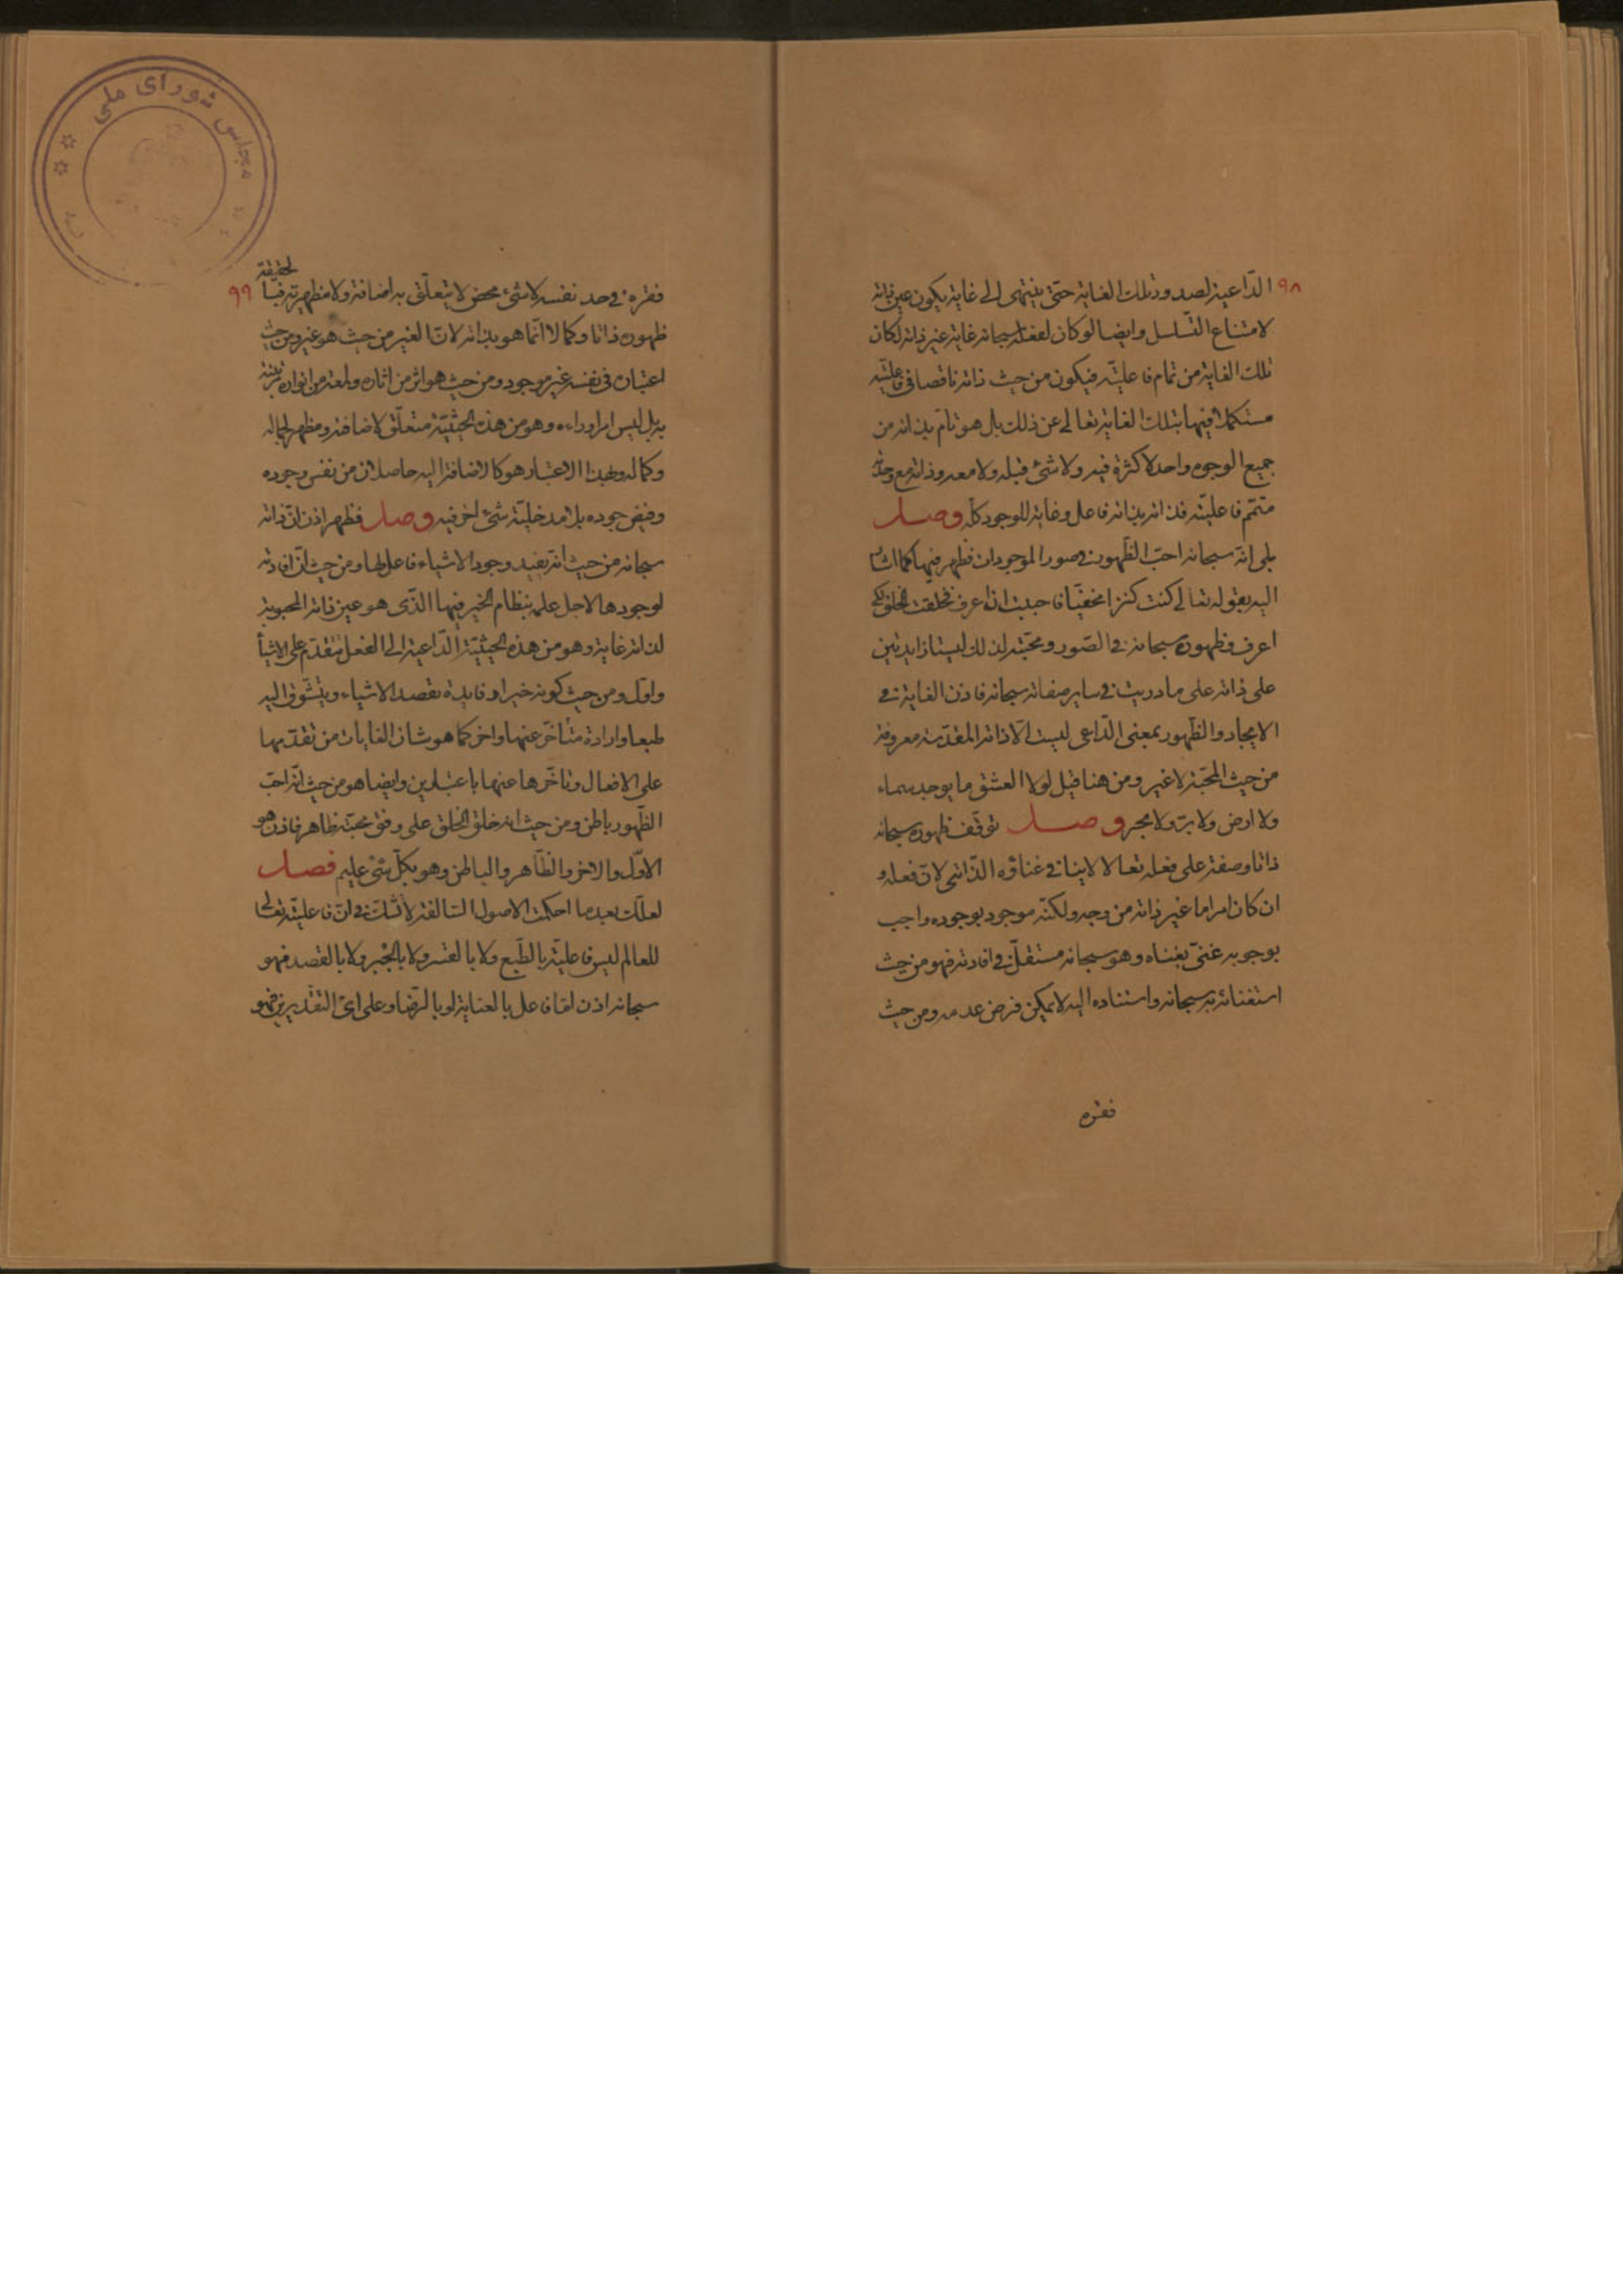 ٩٨
الدّاعية لصدور تلك الغاية حتّى ينتهى الى غاية يكون عين ذاته
لامتناع التّسلسل وايضا لو كان لفعله سبحانه غاية غير ذاته لكان
تلك الغاية من تمام فاعليّته فيكون من حيث ذاته ناقصا فى فاعليّته
مستكملا فيها بتلك الغاية تعالى عن ذلك بل هو تامّ بذاته من
جميع الوجوه واحد لا كثرة فيه ولا شئ قبله ولا معه وذاته مع وحدته
متمّم فاعليّته فذاته بذاته فاعل وغاية للوجود كلّه وصل
بلى انّه سبحانه احبّ الظّهور فى صور الموجودات فظهر فيها كما اشار
اليه بقوله تعالى كنت كنزا مخفيّا فاحببت ان اعرف فخلقت الخلق لكى
اعرف وظهوره سبحانه فى الصّور ومحبّته لذلك ليستا زايدتين
على ذاته على ما دريت فى ساير صفاته سبحانه فاذن الغاية فى
الايجاد والظّهور بمعنى الدّاعى ليست الّا ذاته المقدّسة معروفة
من حيث المحبّة لا غير ومن هنا قيل لولا العشق ما يوجد سماء
ولا ارض ولا برّ ولا بحر وصل توقّف ظهوره سبحانه
ذاتا وصفة على فعله تعالا لا ينافى غناؤه الذّاتى لانّ فعله و
ان كان امرا ما غير ذاته من وجه ولكنّه موجود بوجوده واجب
بوجوبه غنىّ بغناه وهو سبحانه مستقلّ فى افادته فهو من حيث
استغنائه به سبحانه واستناده اليه لا يمكن فرض عدمه ومن حيث
فقره
٩٩
فقره فى حد نفسه لا شئ محض لا يتعلّق به اضافة ولا مظهرية فبالحقيقة
ظهوره ذاتا وكمالا انّما هو بذاته لانّ الغير من حيث هو غير ومن حيث
اعتباره فى نفسه غير موجود ومن حيث هو اثر من اثاره ولمعة من انواره
به بل ليس امرا وراءه وهو من هذه الحيثيّة متعلّق لاضافته ومظهر لجماله
وكماله وبهذا الاعتبار هو كالاضافة اليه حاصلان من نفس وجوده
وفيض جوده بلا مدخليّة شئ اخر فيه وصل فظهر اذن انّ ذاته
سبحانه من حيث انّه يفيد وجود الاشياء فاعل لها ومن حيث انّ افادته
لوجودها لاجل علمه بنظام الخير فيها الذّى هو عين ذاته المحبوبة
لذاته غاية وهو من هذه الحيثيّة الدّاعية الى الفعل متقدّم على الاشيأ
واوّل ومن حيث كونه خيرا وفايدة يقصد الاشياء ويتشوّق اليه
طبعا وارادة متأخّر عنها واخر كما هو شان الغايات من تقدّمها
على الافعال وتاخّرها عنها باعتبارين وايضا هو من حيث انّه احبّ
الظّهور باطن ومن حيث انه خلق الخلق على وفق محبّته ظاهر فاذن هو
الاوّل والاخر والظّاهر والباطن وهو بكلّ شئ عليم فصل
لعلّك بعد ما احكمت الاصول السّالفة لا تشكّ فى انّ فاعليّته تعالى
للعالم ليس فاعليّة بالطّبع ولا بالقسر ولا بالجبر ولا بالقصد فهو
سبحانه اذن امّا فاعل بالعناية او بالرّضا وعلى اىّ التقديرين فهو
مجلس شوراى ملى